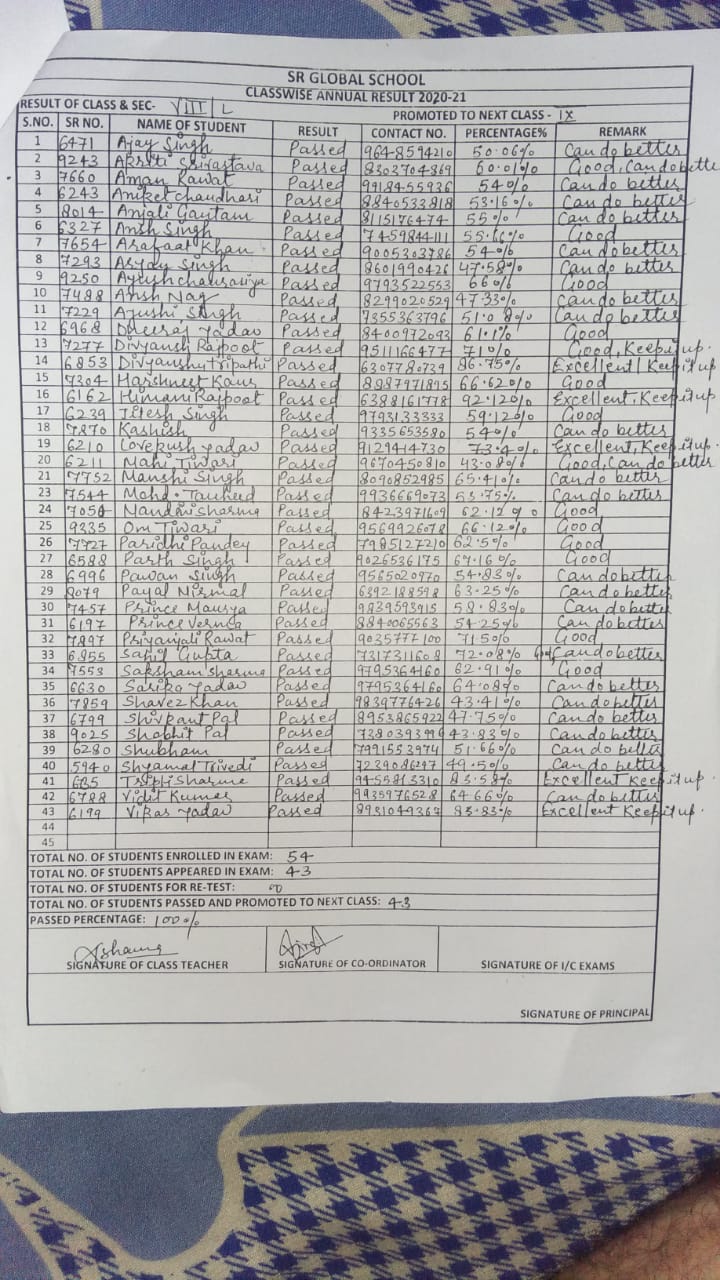 SR GLOBAL SCHOOL
CLASSWISE ANNUAL RESULT 2020-21
RESULT OF CLASS & SEC- VIII L PROMOTED TO NEXT CLASS - IX
S.NO. SR NO. NAME OF STUDENT RESULT CONTACT NO. PERCENTAGE% REMARK
1 6471 Ajay Singh Passed 9648594210 50.06% Can do better
2 9243 Akriti Srivastava Passed 8303704869 60.01% Good, Can do bette
3 7660 Aman Rawat Passed 9918455936 54% Can do better
4 6243 Aniket chaudhari Passed 8840533818 53.16% Can do better
5 8014 Anjali Gautam Passed 8115176474 55% Can do better
6 6327 Ansh Singh Passed 7459844111 55.16% Good
7 7654 Arafaat Khan Passed 9005303786 54% Can do better
8 7293 Singh Passed 8601990426 47.58% Can do better
9 9250 Ayush chaurasiya Passed 9793522553 66% Good
10 7488 Ansh Nag Passed 8299020529 47.33% Can do better
11 7229 Ayushi Singh Passed 7355363796 51.08% Can do better
12 6968 Dheeraj Yadav Passed 8400972093 61.1% Good
13 7277 Divyansh Rajpoot Passed 9511166477 71% Good, Keep it up.
14 6853 Divyanshu Tripathi Passed 6307780739 86.75% Excellent Keep it up
15 7304 Harshneet Kaur Passed 8887971895 66.62% Good
16 6162 Himani Rajpoot Passed 6388161778 92.12% Excellent, Keep it up
17 6239 Jitesh Singh Passed 9793133333 59.12% Good
18 7870 Kashish Passed 9335653580 54% Can do better
19 6210 Lovekush yadav Passed 9129414730 73.4% Excellent, Keep it up.
20 6211 Mahi Tiwari Passed 9670450810 43.08% Good, Can do better
21 7752 Manshi Singh Passed 8090852985 65.41% Can do better
23 7544 Mohd. Tauheed Passed 9936669073 53.75% Can do better
24 7050 Nandni sharma Passed 8423971609 62.12% Good
25 9335 Om Tiwari Passed 9569926078 66.12% Good
26 7727 Paridhi Pandey Passed 7985127210 62.5% Good
27 6588 Parth Singh Passed 9026536175 67.16% Good
28 6996 Pawan Singh Passed 9565020970 54.83% Can do better
29 8079 Payal Nirmal Passed 6392188598 63.25% Can do better
30 7457 Prince Maurya Passed 9839593915 58.83% Can do better
31 6197 Prince Verma Passed 8840065563 54.25% Can do better
32 7897 Priyanjali Rawat Passed 9035777100 71.5% Good
33 6855 Sahil Gupta Passed 7317311608 72.08% Can do better
34 7553 Saksham sharma Passed 9795364160 62.91% Good
35 6630 Sarika Yadav Passed 9795364160 64.08% Can do better
36 7859 Shavez Khan Passed 9839776426 43.41% Can do better
37 6799 Shivkant Pal Passed 8953865922 47.75% Can do better
38 9025 Shobhit Pal Passed 7380393996 43.58% Can do better
39 6280 Shubham Passed 7991553974 51.66% Can do better
40 5940 Shyamal Trivedi Passed 7239086297 49.50% Can do better
41 Tripti Sharma Passed 9455813310 83.58% Excellent Keep it up.
42 6788 Vidit Kumar Passed 9935976528 64.66% Can do better
43 6199 Vikas Yadav Passed 8931049367 83.83% Excellent Keep it up.
44
45
TOTAL NO. OF STUDENTS ENROLLED IN EXAM: 54
TOTAL NO. OF STUDENTS APPEARED IN EXAM: 43
TOTAL NO. OF STUDENTS FOR RE-TEST: 00
TOTAL NO. OF STUDENTS PASSED AND PROMOTED TO NEXT CLASS: 43
PASSED PERCENTAGE: 100%
SIGNATURE OF CLASS TEACHER SIGNATURE OF CO-ORDINATOR SIGNATURE OF I/C EXAMS
SIGNATURE OF PRINCIPAL